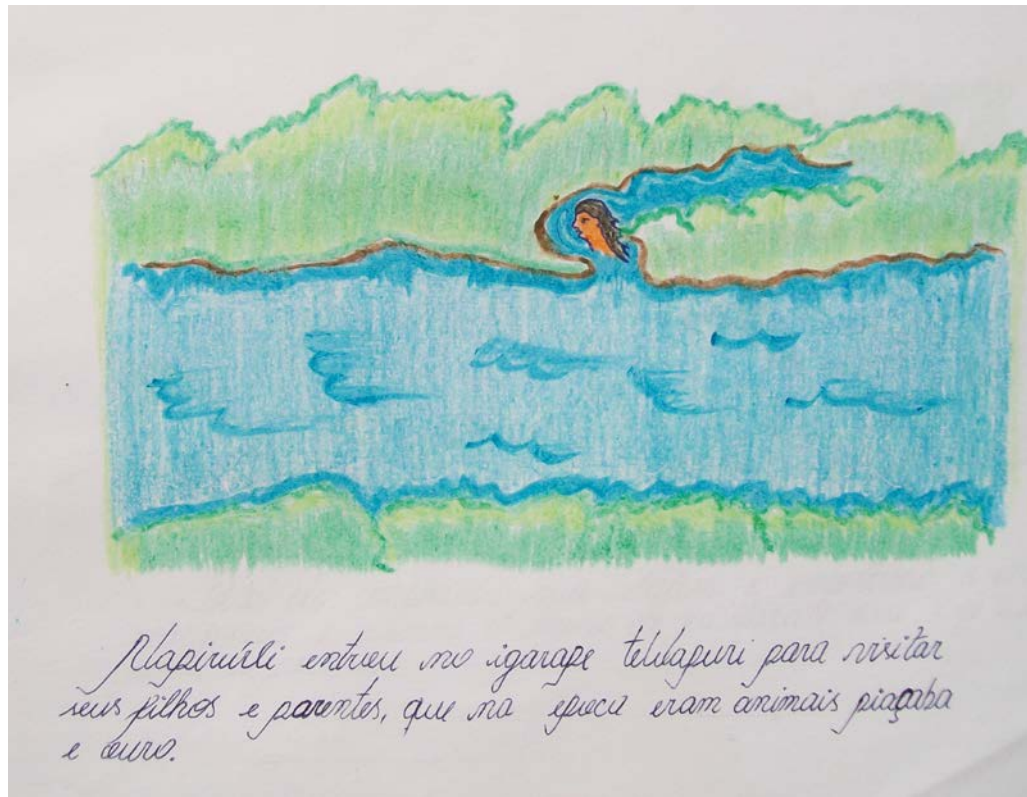 Napirúli entrou no igarape tehlapuri para visitar
seus filhos e parentes, que na época eram animais piaçaba
e ouro.